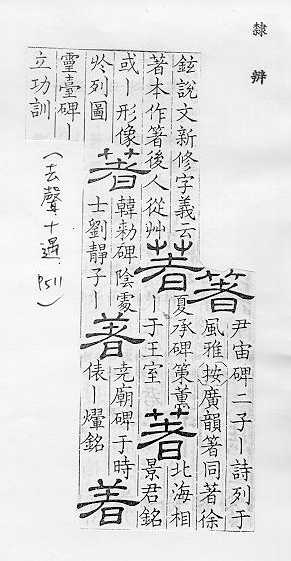 隸辨
箸
尹宙碑二子｜詩列于
風雅按廣韻箸同著徐
鉉說文新修字義云
著本作箸後人從艸
著
夏承碑策薰
｜于王室
著
北海相
景君銘
或｜形像
於列圖
著
韓勑碑陰處
士劉靜子｜
著
堯廟碑于時
俵｜爗銘
著
靈臺碑｜
立功訓
(去聲十遇 P511)